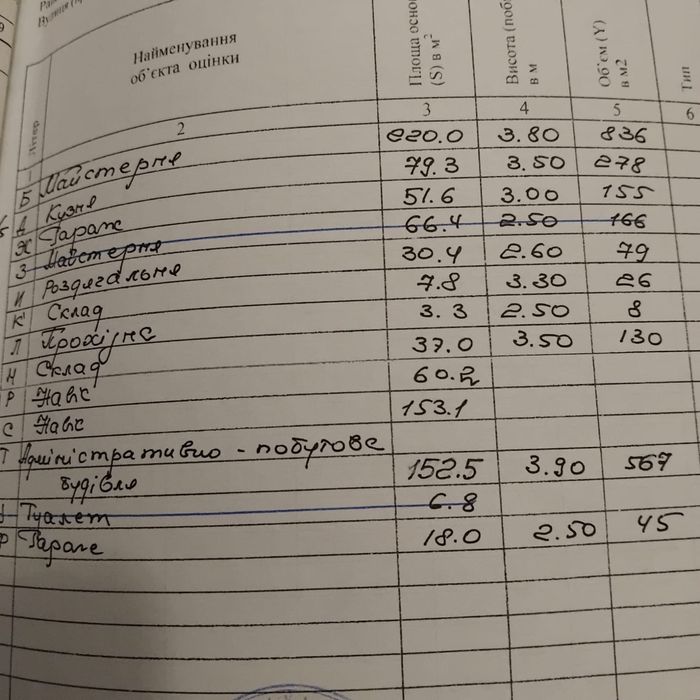 Найменування
об'єкта оцінки
Літер
Площа основ
(S) в м²
Висота (поб
в м
Об'єм (Y)
в м2
Тип
2 3 4 5 6
Б Майстерня 220.0 3.80 836
Д Кузня 79.3 3.50 278
Ж Гараж 51.6 3.00 155
З Майстерня 66.4 2.50 166
И Роздягальня 30.4 2.60 79
К' Склад 7.8 3.30 26
Л Прохідна 3.3 2.50 8
Н Склад 37.0 3.50 130
Р Навіс 60.2
С Навіс 153.1
Т Адміністративно - побутова
будівля 152.5 3.90 567
Туалет 6.8
Гараж 18.0 2.50 45